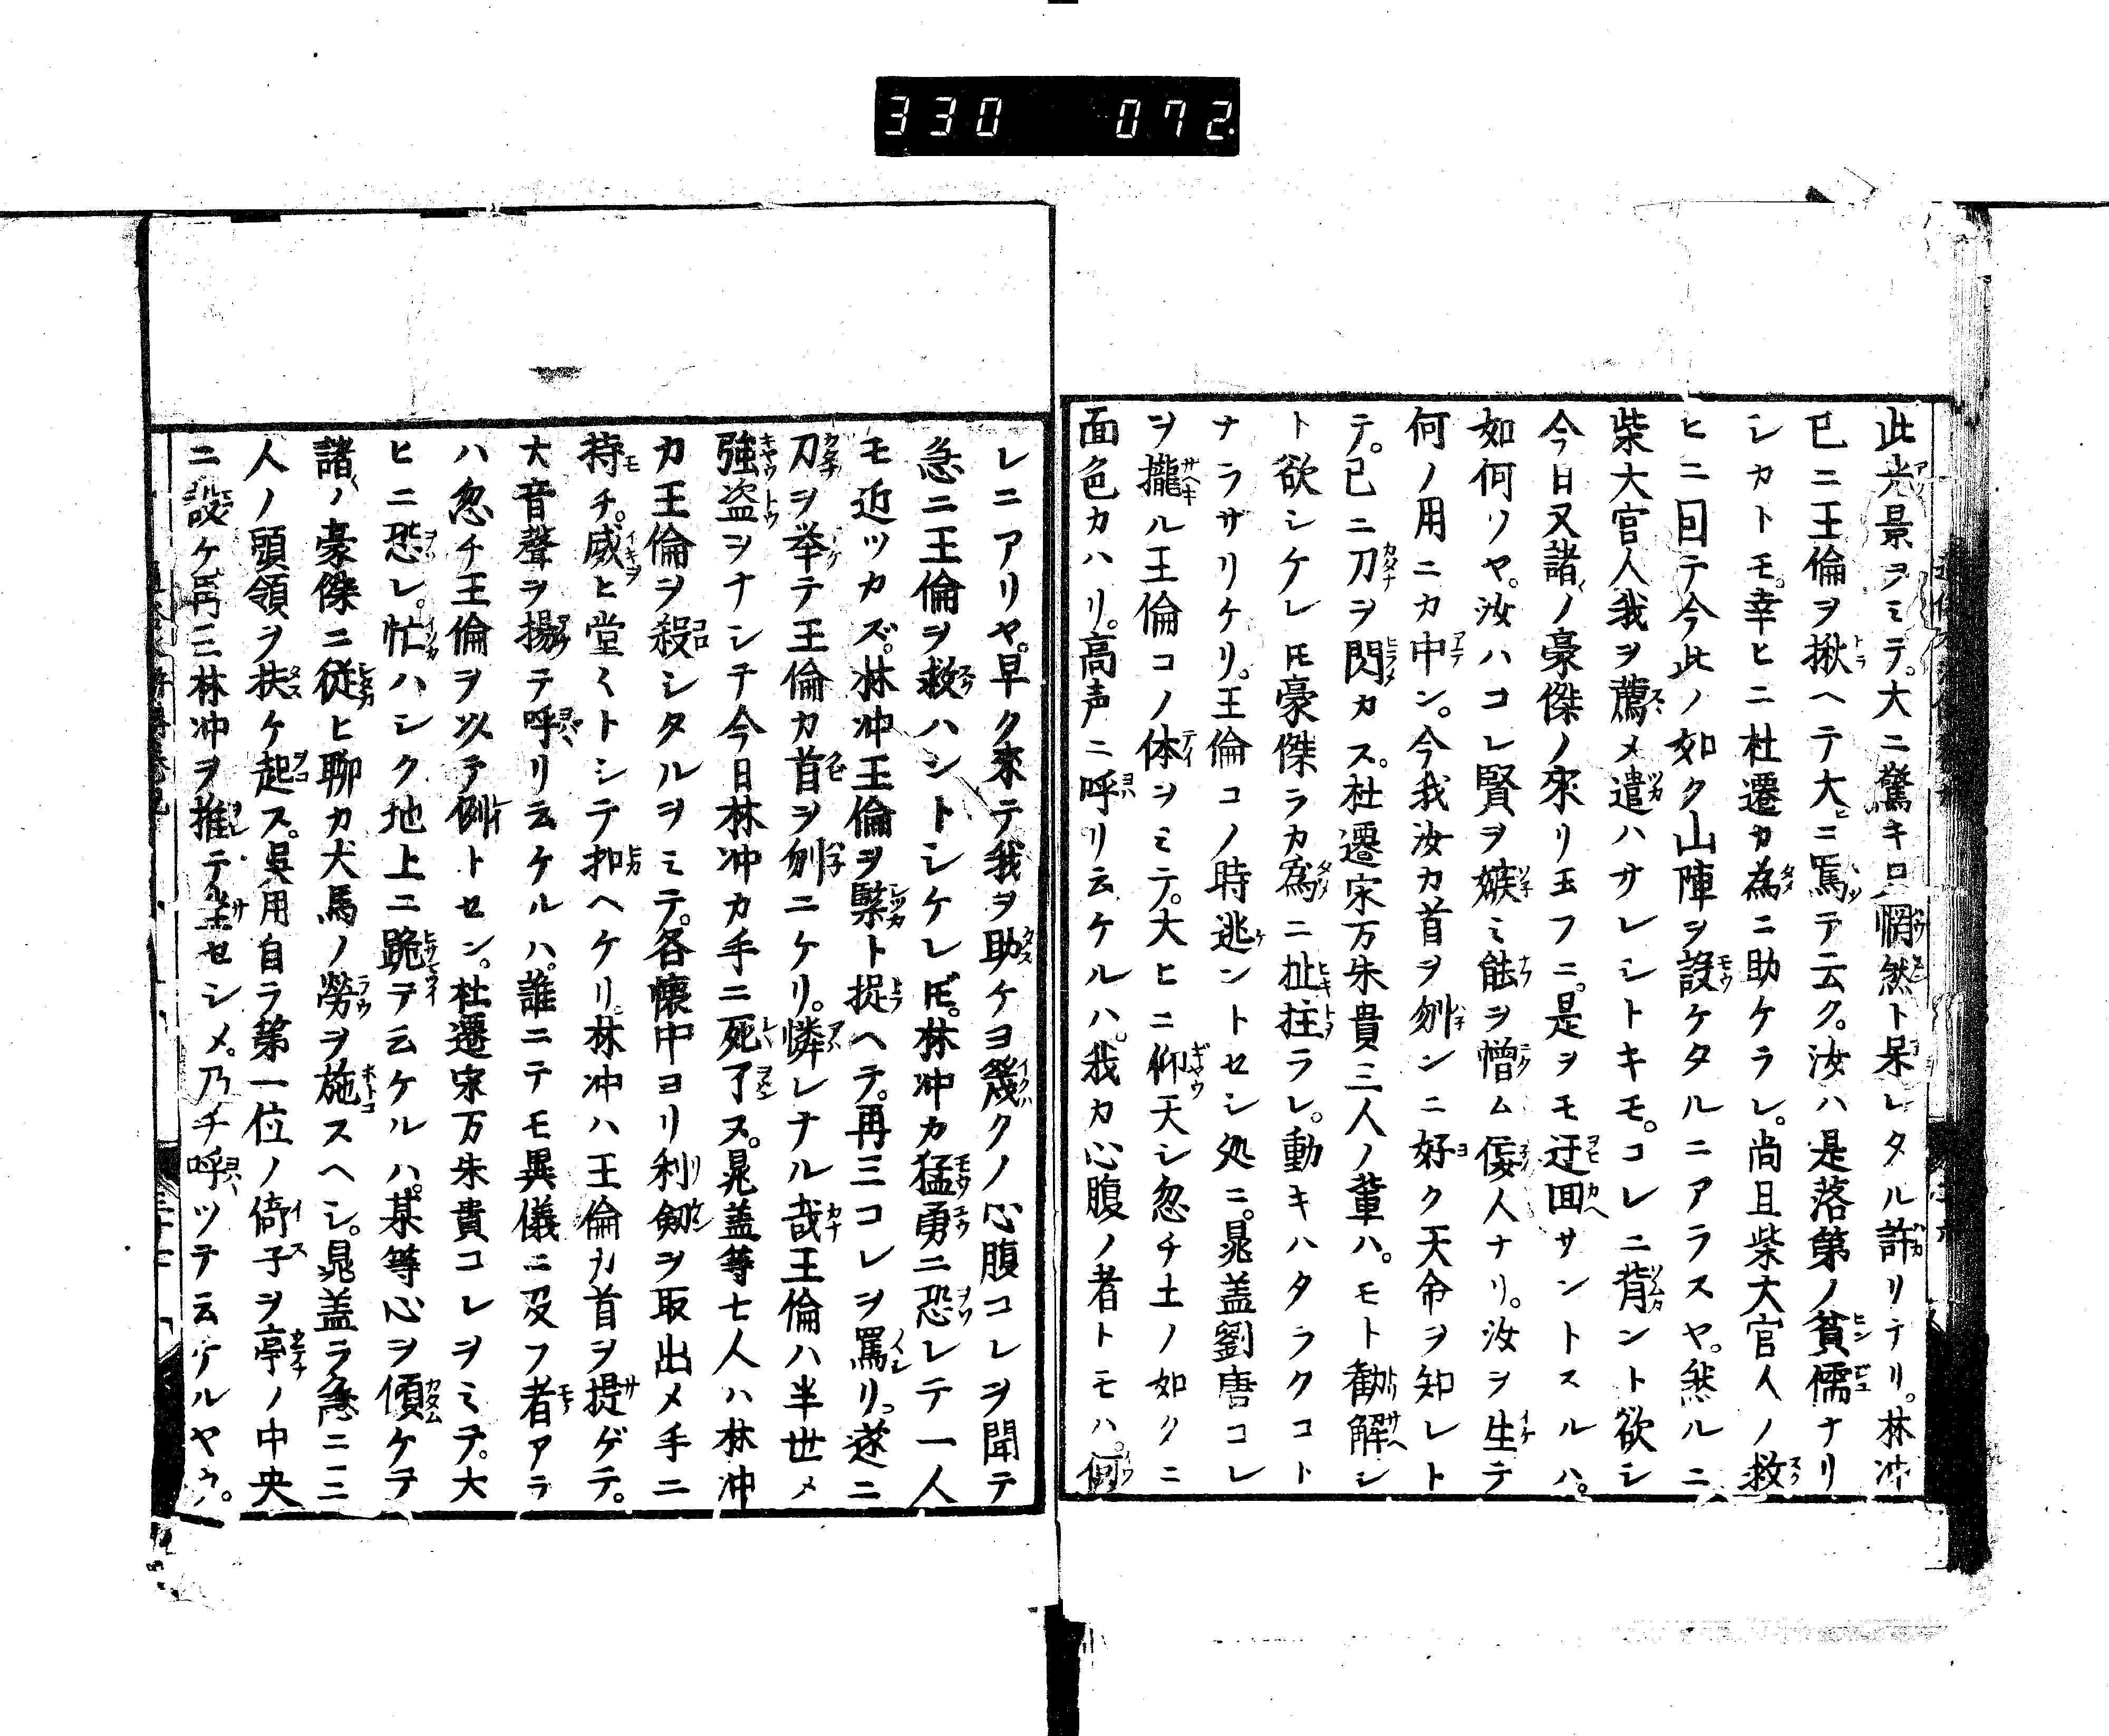 330 072.
此光景ヲミテ。大ニ驚キ只惘然ト呆レタル許リテリ。林冲
已ニ王倫ヲ揪ヘテ大ニ罵テ云ク。汝ハ是落第ノ貧儒ナリ
シカトモ。幸ヒニ杜遷カ為ニ助ケラレ。尚且柴大官人ノ救
ヒニ回テ今此ノ如ク山陣ヲ設ケタルニアラスヤ。然ルニ
柴大官人我ヲ薦メ遣ハサレシトキモ。コレニ背ント欲シ
今日又諸ノ豪傑ノ來リ玉フニ。是ヲモ迂回サントスルハ。
如何ソヤ。汝ハコレ賢ヲ嫉ミ能ヲ憎ム倭人ナリ。汝ヲ生テ
何ノ用ニカ中ン。今我汝カ首ヲ刎ンニ好ク天命ヲ知レト
テ。已ニ刀ヲ閃カス。杜遷宋万朱貴三人ノ輩ハ。モト勸解シ
ト欲シケレ𪜈豪傑ラカ為ニ扯拄ラレ。動キハタラクコト
ナラザリケリ。王倫コノ時逃ントセシ処ニ。晁盖劉唐コレ
ヲ攏ル王倫コノ体ヲミテ。大ヒニ仰天シ忽チ土ノ如クニ
面色カハリ。高声ニ呼リ云ケルハ。我カ心腹ノ者トモハ。何
レニアリヤ。早ク來テ我ヲ助ケヨ幾クノ心腹コレヲ聞テ
急ニ王倫ヲ救ハントシケレ𪜈。林冲カ猛勇ニ恐レテ一人
モ近ツカズ。林冲王倫ヲ緊ト捉ヘテ。再三コレヲ罵リ。遂ニ
刀ヲ举テ王倫カ首ヲ刎ニケリ。憐レナル哉王倫ハ半世メ
強盗ヲナシテ今日林冲カ手ニ死了ヌ。晁盖等七人ハ林冲
カ王倫ヲ殺シタルヲミテ。各懐中ヨリ利剱ヲ取出メ手ニ
持チ。威ヒ堂ミトシテ扣ヘケリ。林冲ハ王倫カ首ヲ提ゲテ。
大音聲ヲ揚テ呼リ云ケルハ。誰ニテモ異儀ニ及フ者アラ
ハ忽チ王倫ヲ以テ例トセン。杜遷宋万朱貴コレヲミテ。大
ヒニ恐レ。忙ハシク地上ニ跪テ云ケルハ。某等心ヲ傾ケテ
諸ノ豪傑ニ従ヒ聊カ犬馬ノ勞ヲ施スヘシ。晁盖ラ急ニ三
人ノ頭領ヲ扶ケ起ス。吳用自ラ第一位ノ倚子ヲ亭ノ中央
ニ設ケ再三林冲ヲ推テ坐セシメ。乃チ呼ツテ云ケルヤウ。